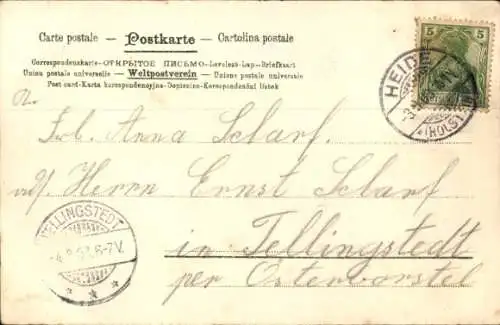 Carte postale – Postkarte – Cartolina postale
Correspondenzkarte-ОТКРЫТОЕ ПИСЬМО-Levelező-Lap-Briefkaart
Union postale universelle — Weltpostverein — Unione postale universale
Post card-Karta korespondencyjna-Dopisnice-Korespondenční lístek
5 5
HEIDE
(HOLST
Frl. Anna Scharf.
adr. Herrn Ernst Scharf
TELLINGSTEDT
6-7V.
* * *
in Tellingstedt
per Osterborstel